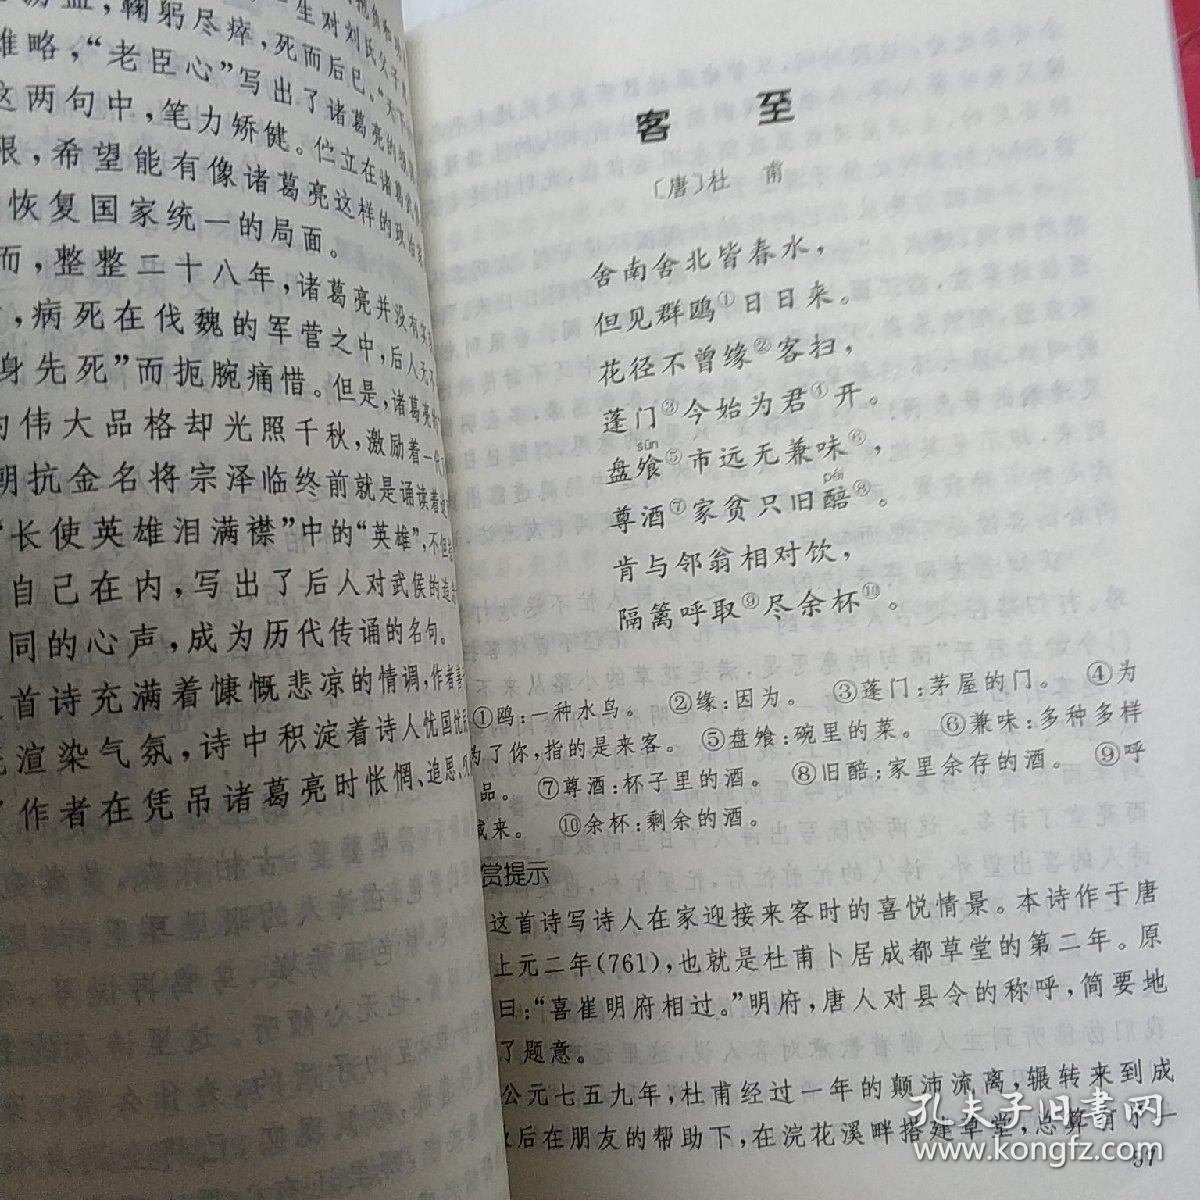 鞠躬尽瘁，死而后已。“天下
雄略，“老臣心”写出了诸葛亮的
这两句中，笔力矫健。伫立在诸葛
眼，希望能有像诸葛亮这样的政治
恢复国家统一的局面。
而，整整二十八年，诸葛亮并没有
，病死在伐魏的军营之中，后人无不
身先死”而扼腕痛惜。但是，诸葛亮
的伟大品格却光照千秋，激励着一代
朝抗金名将宗泽临终前就是诵读着
“长使英雄泪满襟”中的“英雄”，不但
自己在内，写出了后人对武侯的追
同的心声，成为历代传诵的名句。
首诗充满着慷慨悲凉的情调，作者善
渲染气氛，诗中积淀着诗人忧国忧民
作者在凭吊诸葛亮时怅惘、追思、
客 至
〔唐〕杜 甫
舍南舍北皆春水，
但见群鸥①日日来。
花径不曾缘②客扫，
蓬门③今始为君①开。
sūn
盘飧⑤市远无兼味⑥，
pēi
尊酒⑦家贫只旧醅⑧。
肯与邻翁相对饮，
隔篱呼取⑨尽余杯⑩。
①鸥：一种水鸟。 ②缘：因为。 ③蓬门：茅屋的门。 ④为
为了你，指的是来客。 ⑤盘飧：碗里的菜。 ⑥兼味：多种多样
品。 ⑦尊酒：杯子里的酒。 ⑧旧醅：家里余存的酒。 ⑨呼
来。 ⑩余杯：剩余的酒。
赏提示
这首诗写诗人在家迎接来客时的喜悦情景。本诗作于唐
上元二年(761)，也就是杜甫卜居成都草堂的第二年。原
曰：“喜崔明府相过。”明府，唐人对县令的称呼，简要地
了题意。
公元七五九年，杜甫经过一年的颠沛流离，辗转来到成
后在朋友的帮助下，在浣花溪畔搭建草堂，总算有了一
51
孔夫子旧书网
www.kongfz.com